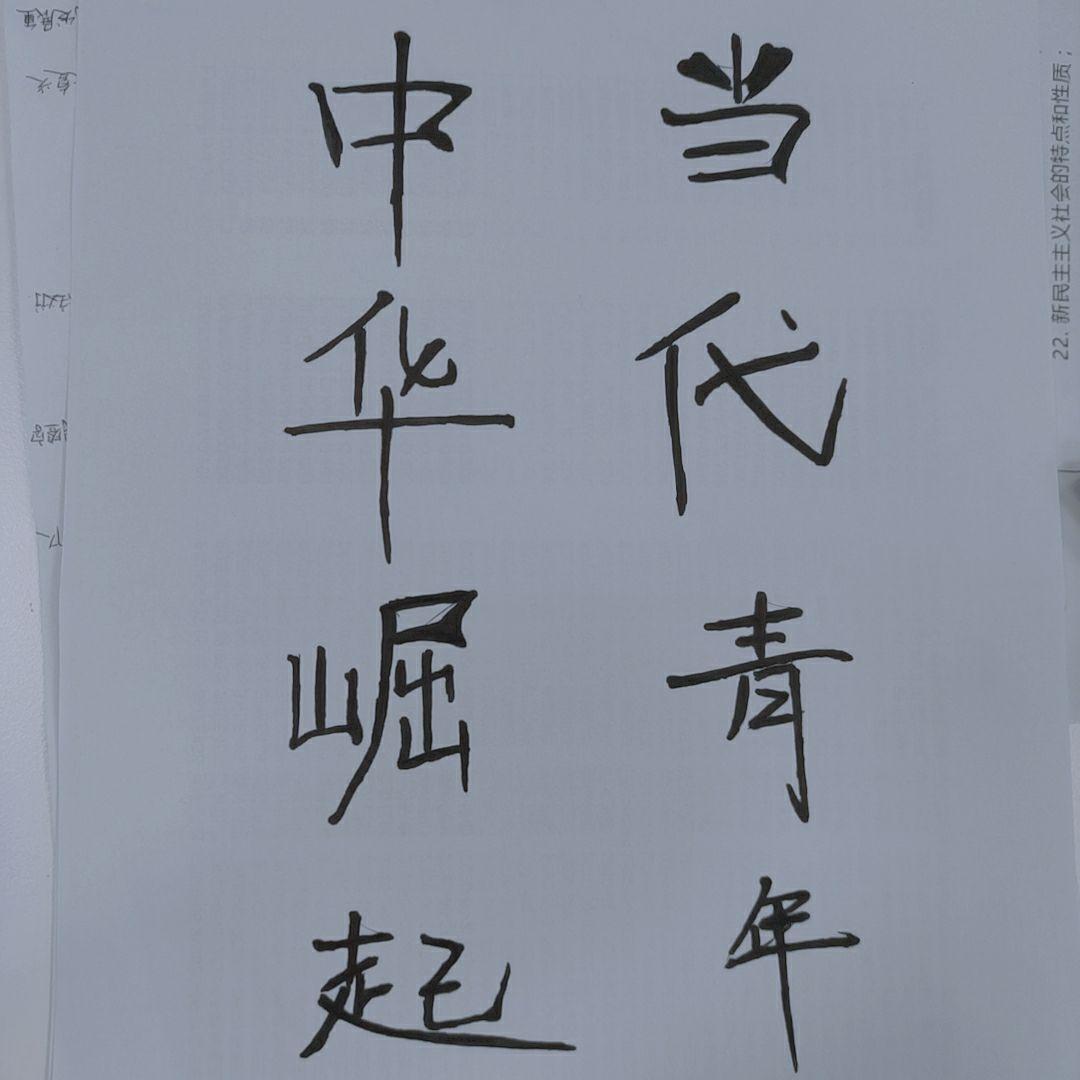 当代青年
中华崛起
22. 新民主主义社会的特点和性质；